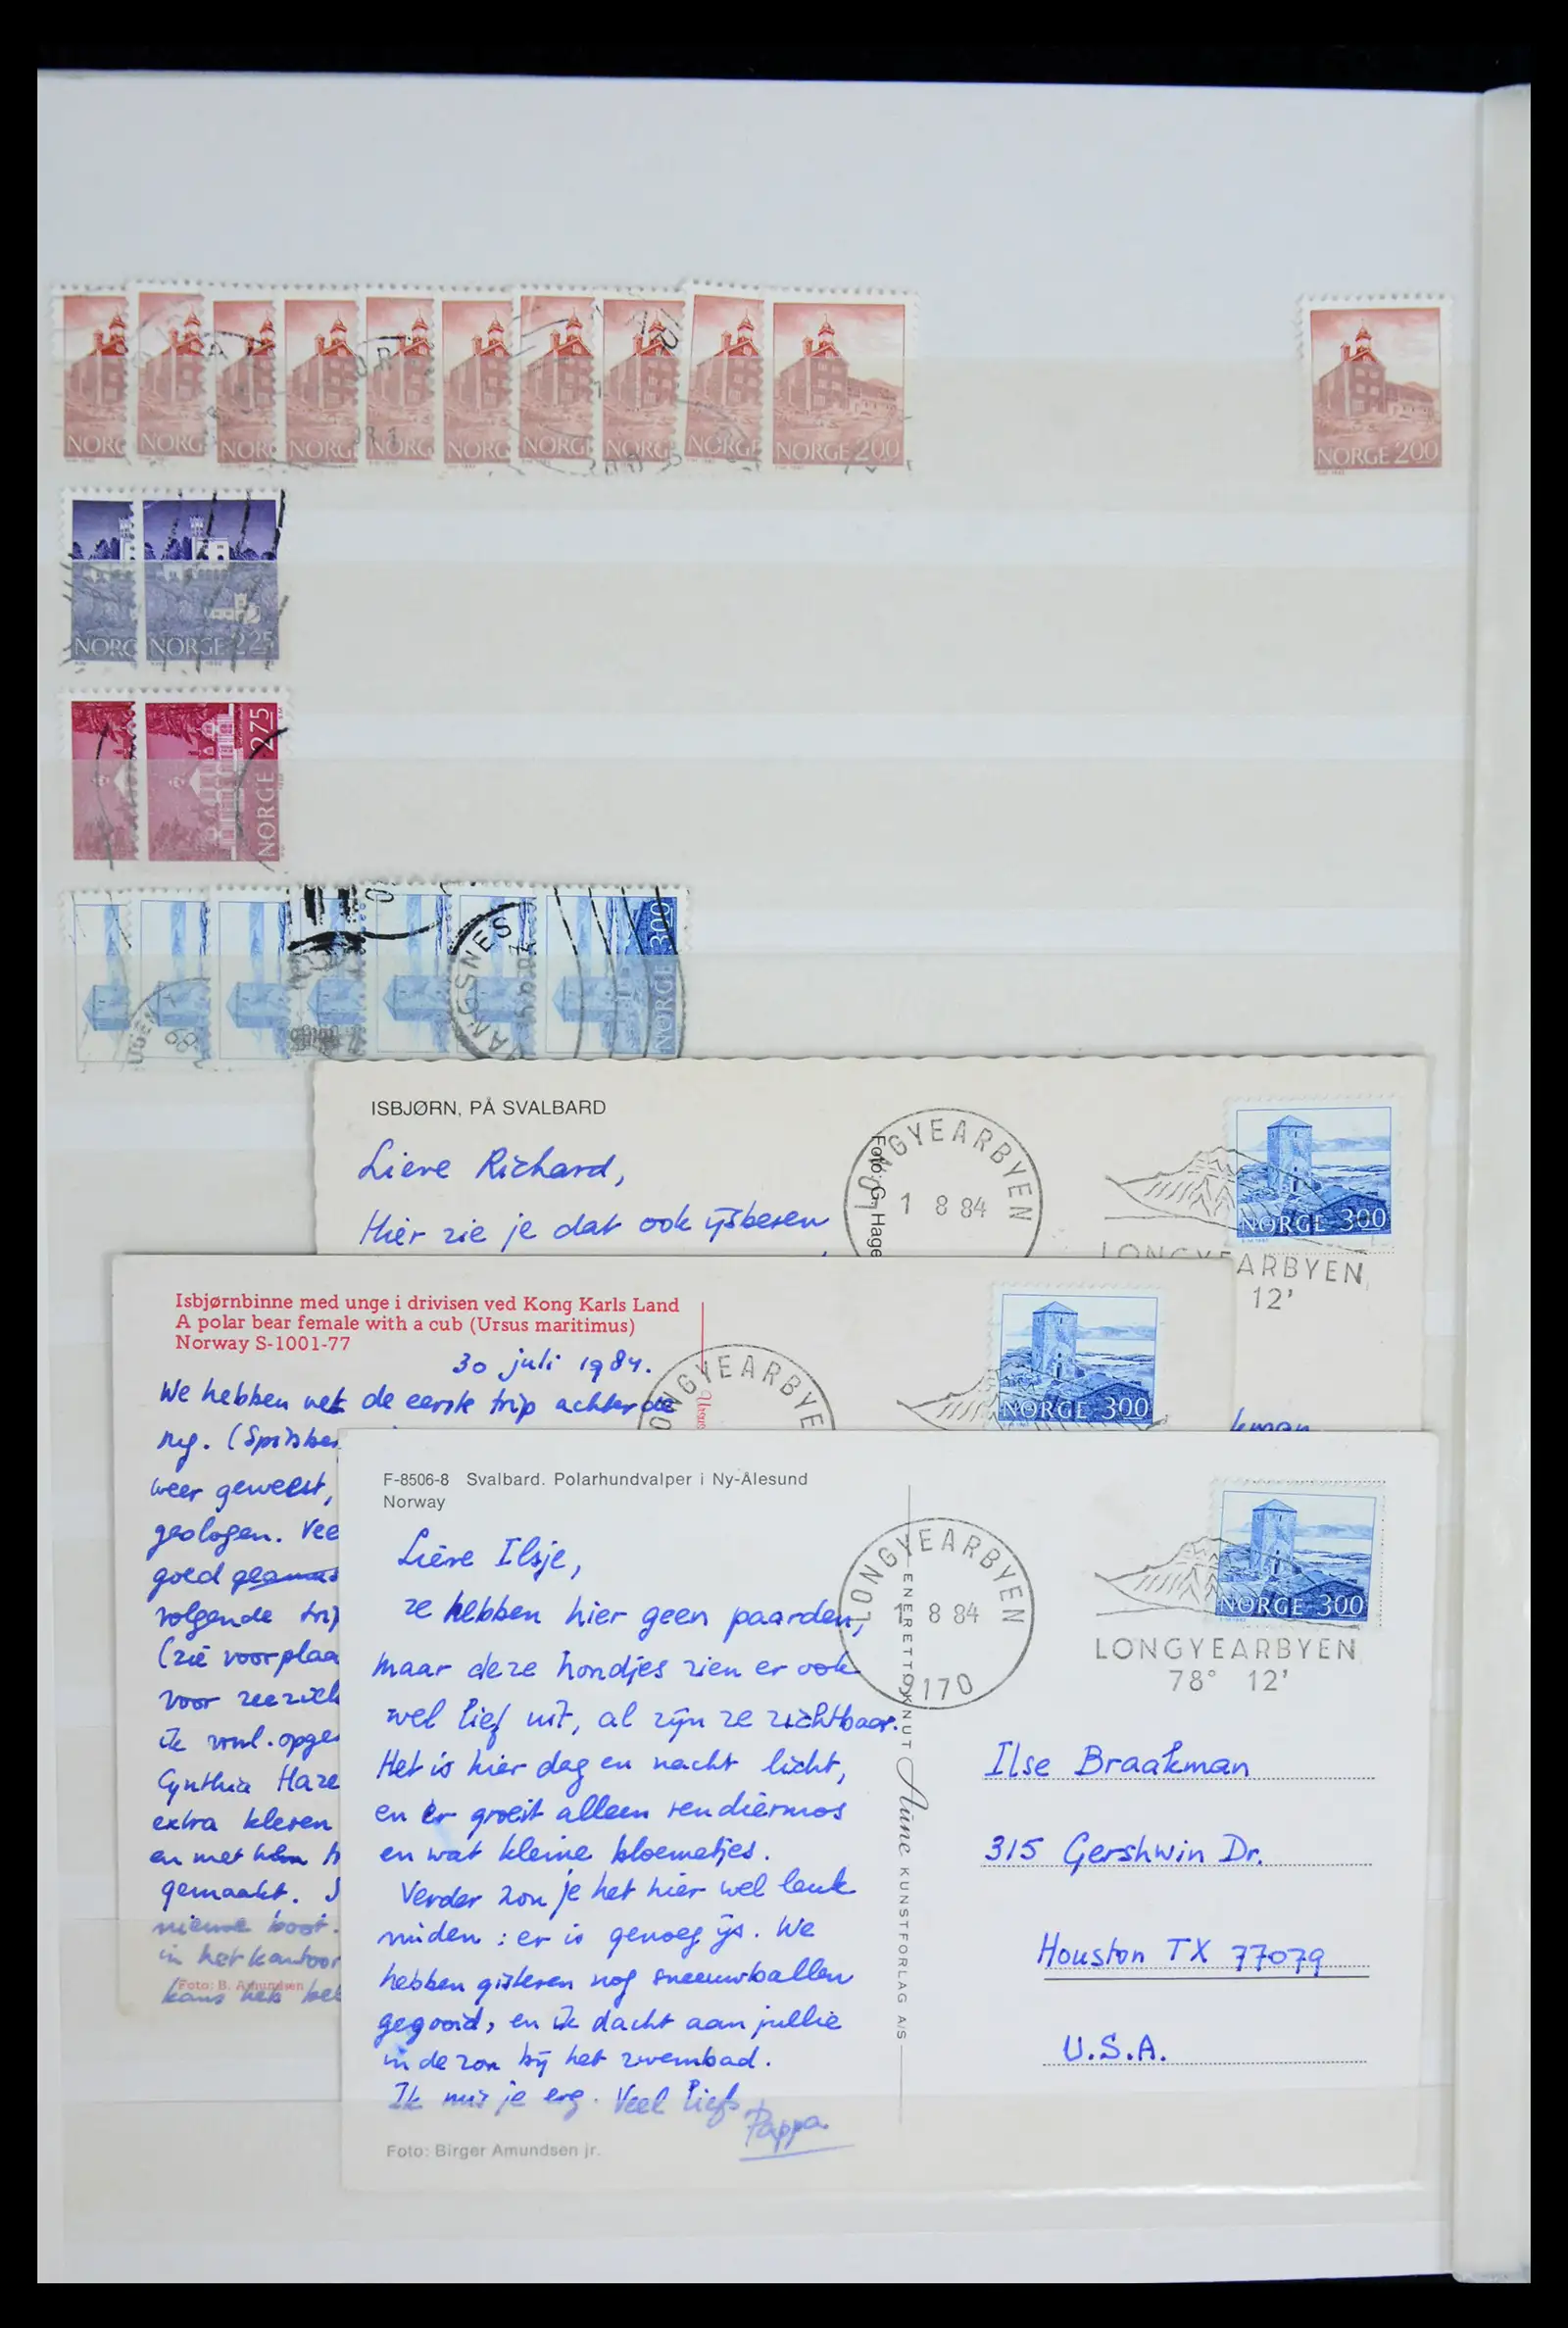 NORG
NORG
NORG
NORG
NORG
NORG
NORG
NORG
NORGE
NORGE 200
NORGE 200
NORG
NORGE 225
NORGE 275
VANGSNES
NORGE 300
ISBJØRN, PÅ SVALBARD
Lieve Richard,
Hier zie je dat ook ijsberen
Foto: G. Hage
LONGYEARBYEN
1 8 84
NORGE 300
LONGYEARBYEN
12'
Isbjørnbinne med unge i drivisen ved Kong Karls Land
A polar bear female with a cub (Ursus maritimus)
Norway S-1001-77
30 juli 1984.
We hebben net de eerste trip achter de
rug. (Spitsber
weer geweest,
geologen. Vee
goed
volgende trip
(zie voorplaa
voor zeeziek
ik
Cynthia Haze
extra kleren
en met hem
gemaakt.
nieuwe boot.
in het kantoor
kans heb
Foto: B. Amundsen
ONGYEARBYE
NORGE 300
kman
F-8506-8 Svalbard. Polarhundvalper i Ny-Ålesund
Norway
Lieve Ilsje,
ze hebben hier geen paarden,
maar deze hondjes zien er ook
wel lief uit, al zijn ze zichtbaar.
Het is hier dag en nacht licht,
en er groeit alleen rendiermos
en wat kleine bloemetjes.
Verder zou je het hier wel leuk
vinden: er is genoeg ijs. We
hebben gisteren nog sneeuwballen
gegooid, en ik dacht aan jullie
in de zon bij het zwembad.
Ik mis je erg. Veel liefs
Pappa
Foto: Birger Amundsen jr.
ENERETT: KNUT Aune KUNSTFORLAG A/S
LONGYEARBYEN
1 8 84
9170
NORGE 300
LONGYEARBYEN
78° 12'
Ilse Braakman
315 Gershwin Dr.
Houston TX 77079
U.S.A.